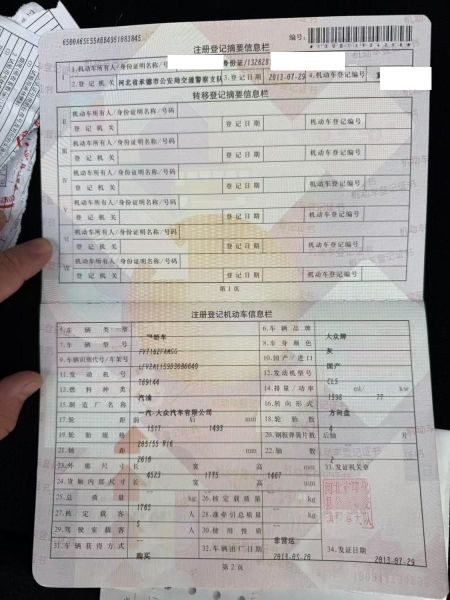 注册登记摘要信息栏
编号:
1.机动车所有人/身份证明名称/号 身份证/132628
2.登记机关 河北省承德市公安局交通警察支队 3.登记日期 2013-07-29 4.机动车登记编号
转移登记摘要信息栏
Ⅱ 机动车所有人/身份证明名称/号码
登记机关 登记日期 机动车登记编号
Ⅲ 机动车所有人/身份证明名称/号码
登记机关 登记日期 机动车登记编号
Ⅳ 机动车所有人/身份证明名称/号码
登记机关 登记日期 机动车登记编号
Ⅴ 机动车所有人/身份证明名称/号码
登记机关 登记日期 机动车登记编号
Ⅵ 机动车所有人/身份证明名称/号码
登记机关 登记日期 机动车登记编号
Ⅶ 机动车所有人/身份证明名称/号码
登记机关 登记日期 机动车登记编号
第1页
注册登记机动车信息栏
5.车辆类型 轿车 6.车辆品牌 大众牌
7.车辆型号 8.车身颜色 灰
9.车辆识别代号/车架号 10.国产/进口 国产
11.发动机号 T69144 12.发动机型号
13.燃料种类 汽油 14.排量/功率 1598 ml/ 77 kw
15.制造厂名称 一汽-大众汽车有限公司 16.转向形式 方向盘
17.轮距 前 1517 后 1493 mm 18.轮胎数 4
19.轮胎规格 205/55 R16 20.钢板弹簧片数 后轴 片
21.轴距 2610 mm 22.轴数 2
23.外廓尺寸 长 4523 宽 1775 高 1467 mm 33.发证机关章
24.货厢内部尺寸 长 宽 高 mm
25.总质量 1765 kg 26.核定载质量 kg
27.核定载客 5 人 28.准牵引总质量 kg
29.驾驶室载客 人 30.使用性质 非营运
31.车辆获得方式 购买 32.车辆出厂日期 34.发证日期 2013-07-29
第2页